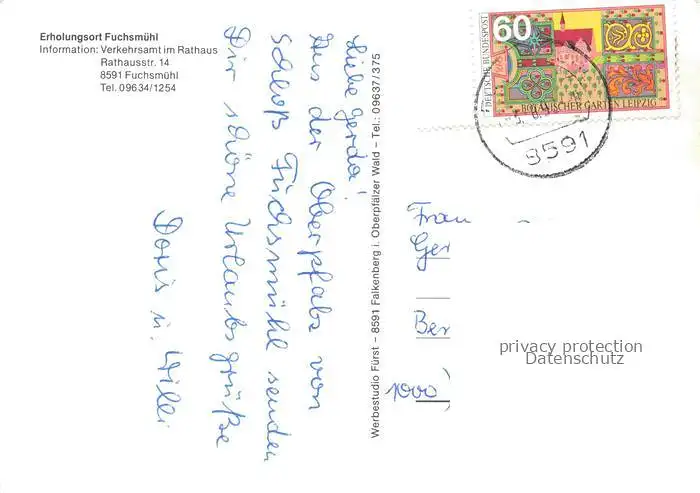 Erholungsort Fuchsmühl
Information: Verkehrsamt im Rathaus
Rathausstr. 14
8591 Fuchsmühl
Tel. 09634/1254
Liebe Gerda!
Aus der Oberpfalz von
Schloß Fuchsmühl senden
Dir schöne Urlaubsgrüße
Doris u. Willi
Werbestudio Fürst – 8591 Falkenberg i. Oberpfälzer Wald – Tel.: 09637/375
60
DEUTSCHE BUNDESPOST
BOTANISCHER GARTEN LEIPZIG
8591
Frau
Ger
Ber
1000
privacy protection
Datenschutz